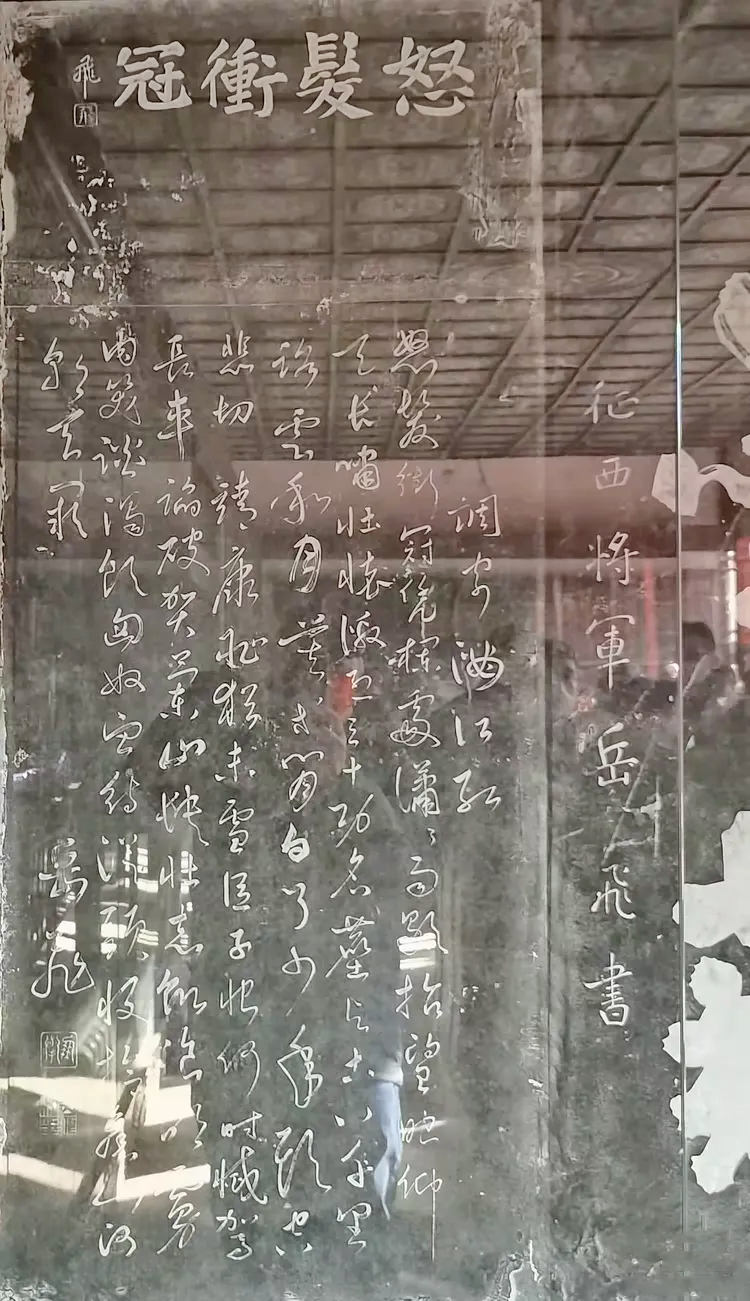 怒髮衝冠
飛
征西將軍岳飛書
調寄滿江紅
怒髮衝冠憑欄處瀟瀟雨歇抬望眼仰
天長嘯壯懷激烈三十功名塵與土八千里
路雲和月莫等閒白了少年頭空
悲切 靖康恥猶未雪臣子恨何時滅駕
長車踏破賀蘭山缺壯志飢餐胡虜
肉笑談渴飲匈奴血待從頭收拾舊山河
朝天闕
岳飛